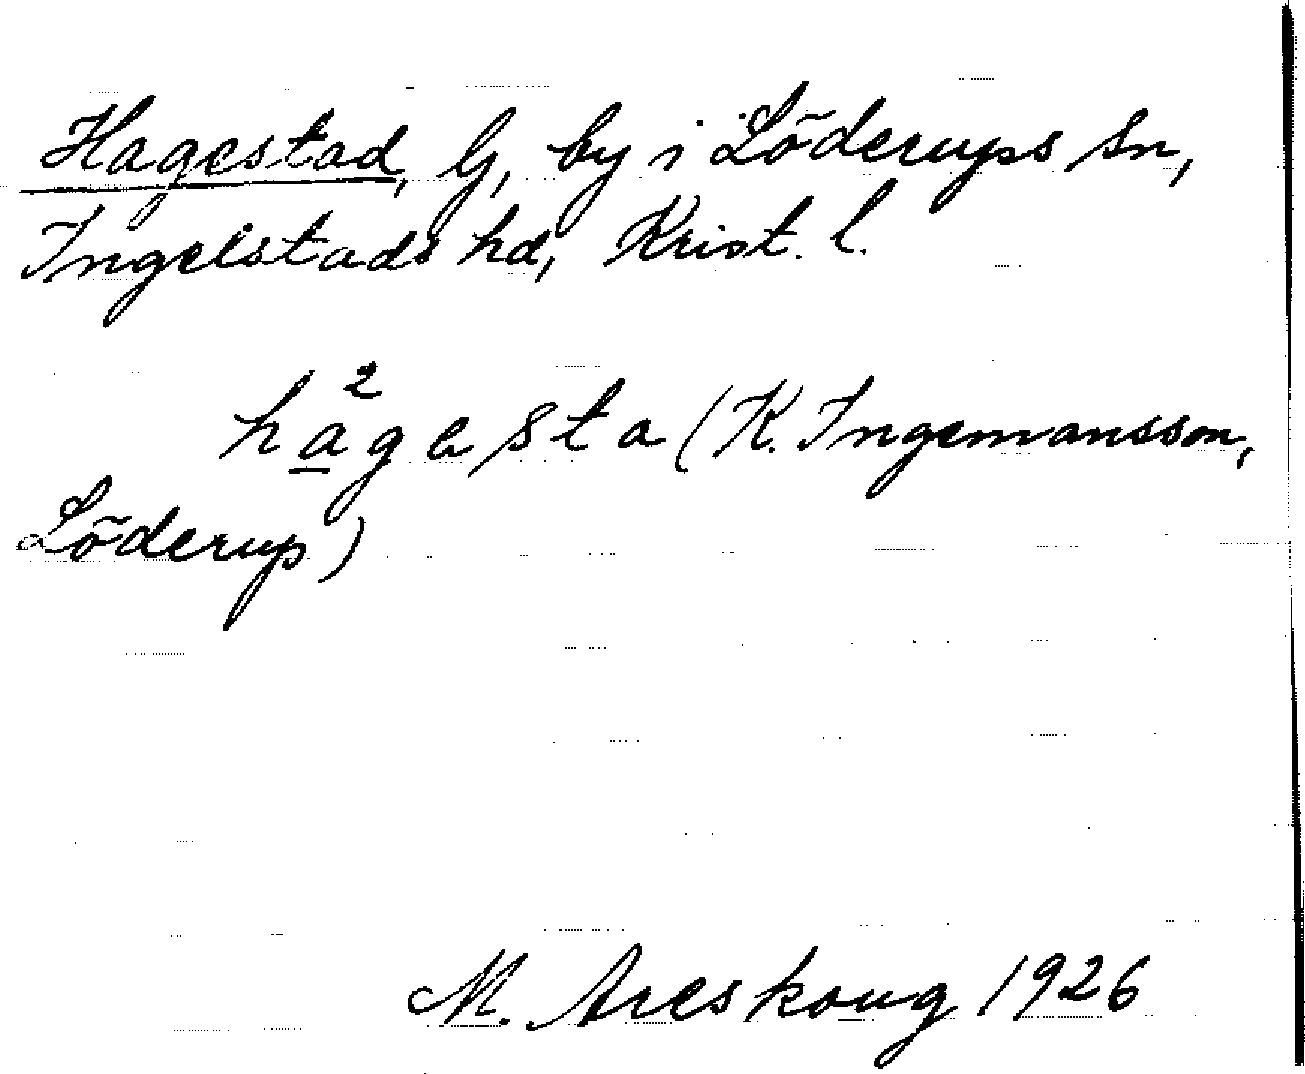 Hagestad, G, by i Löderups sn,
Ingelstads hd, Krist. l.
ha²gesta (K. Ingemansson,
Löderup)
M. Areskoug 1926